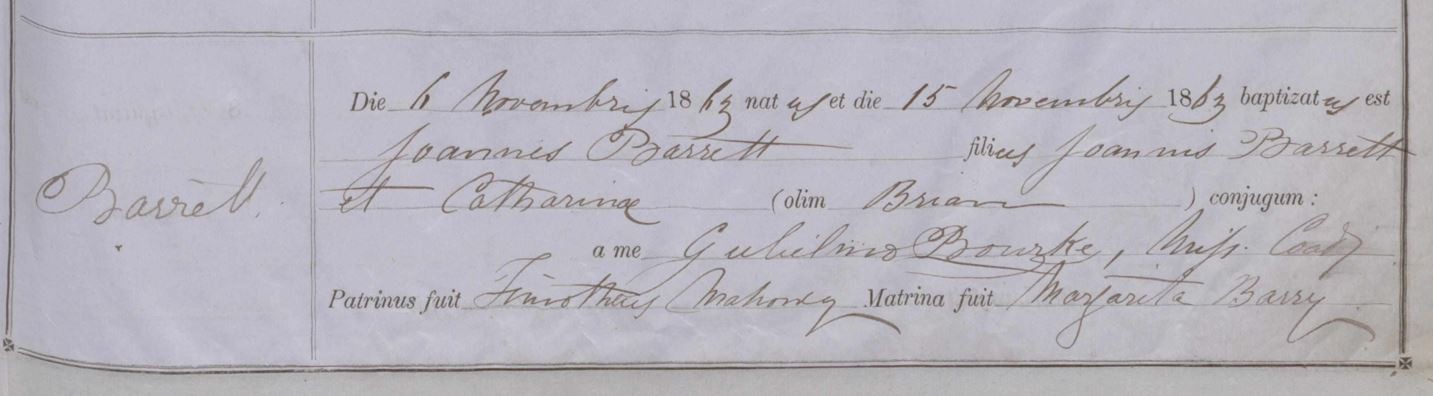 Die 6 Novembris 1863 natus et die 15 Novembris 1863 baptizatus est
Joannis Barrett filius Joannis Barrett
Barrett. et Catharinæ (olim Brian) conjugum :
a me Gulielmo Bourke, Miss. Coadj
Patrinus fuit Timotheus Mahony Matrina fuit Margarita Barry